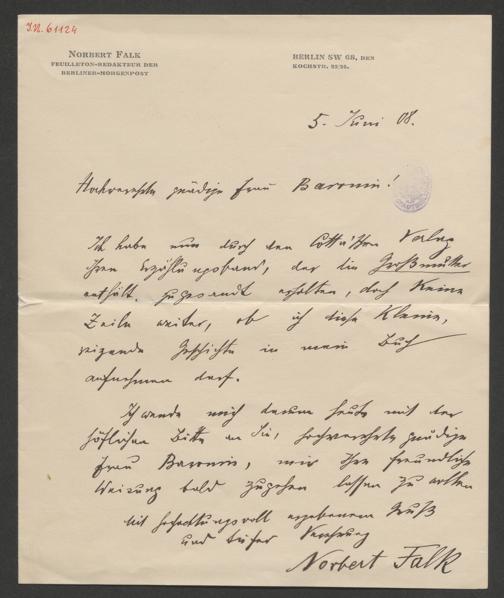 I.N. 61124
NORBERT FALK
FEUILLETON-REDAKTEUR DER
BERLINER-MORGENPOST
BERLIN SW 68, DEN
KOCHSTR. 23/25.
5. Juni 08.
Hochverehrte gnädige Frau Baronin!
Ich habe nun durch den Cotta'schen Verlag
Ihren Erzählungsband, der die Großmutter
enthält, zugesandt erhalten, doch keine
Zeile weiter, ob ich diese kleine,
reizende Geschichte in mein Buch
aufnehmen darf.
Ich wende mich darum heute mit der
höflichen Bitte an Sie, hochverehrte gnädige
Frau Baronin, mir Ihre freundliche
Weisung bald zugehen lassen zu wollen
Mit hochachtungsvoll ergebenem Gruß
und tiefer Verehrung
Norbert Falk